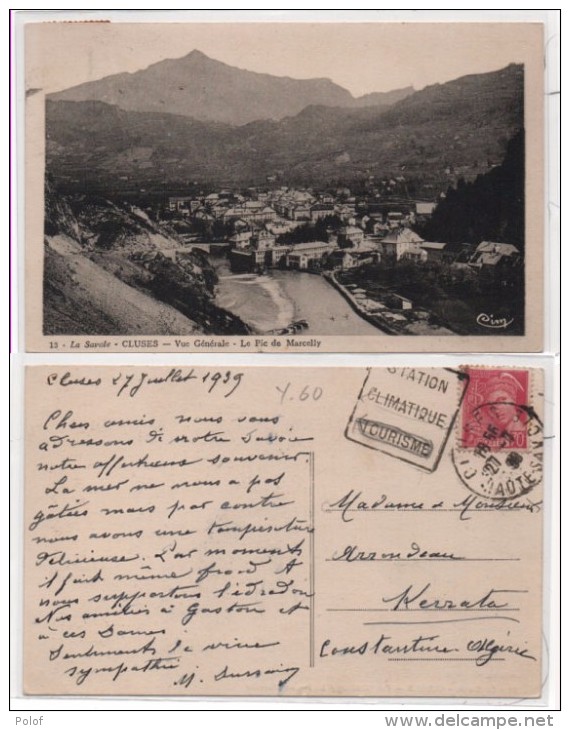 13 - La Savoie - CLUSES — Vue Générale - Le Pic de Marcelly
Cim
Cluses 27 Juillet 1939
Y.60
Chers amis nous vous
adressons de notre Savoie
notre affectueux souvenir.
La mer ne nous a pas
gâtées mais par contre
nous avons une température
délicieuse. Par moments
il fait même froid &
nous supportons l'édredon
Nos amitiés à Gaston et
à ces Dames
Sentiments la vive
sympathie
STATION
CLIMATIQUE
TOURISME
HAUTE-SAV
Madame & Monsieur
Arrondeau
Kerrata
Constantine Algérie
Polof
www.delcampe.net